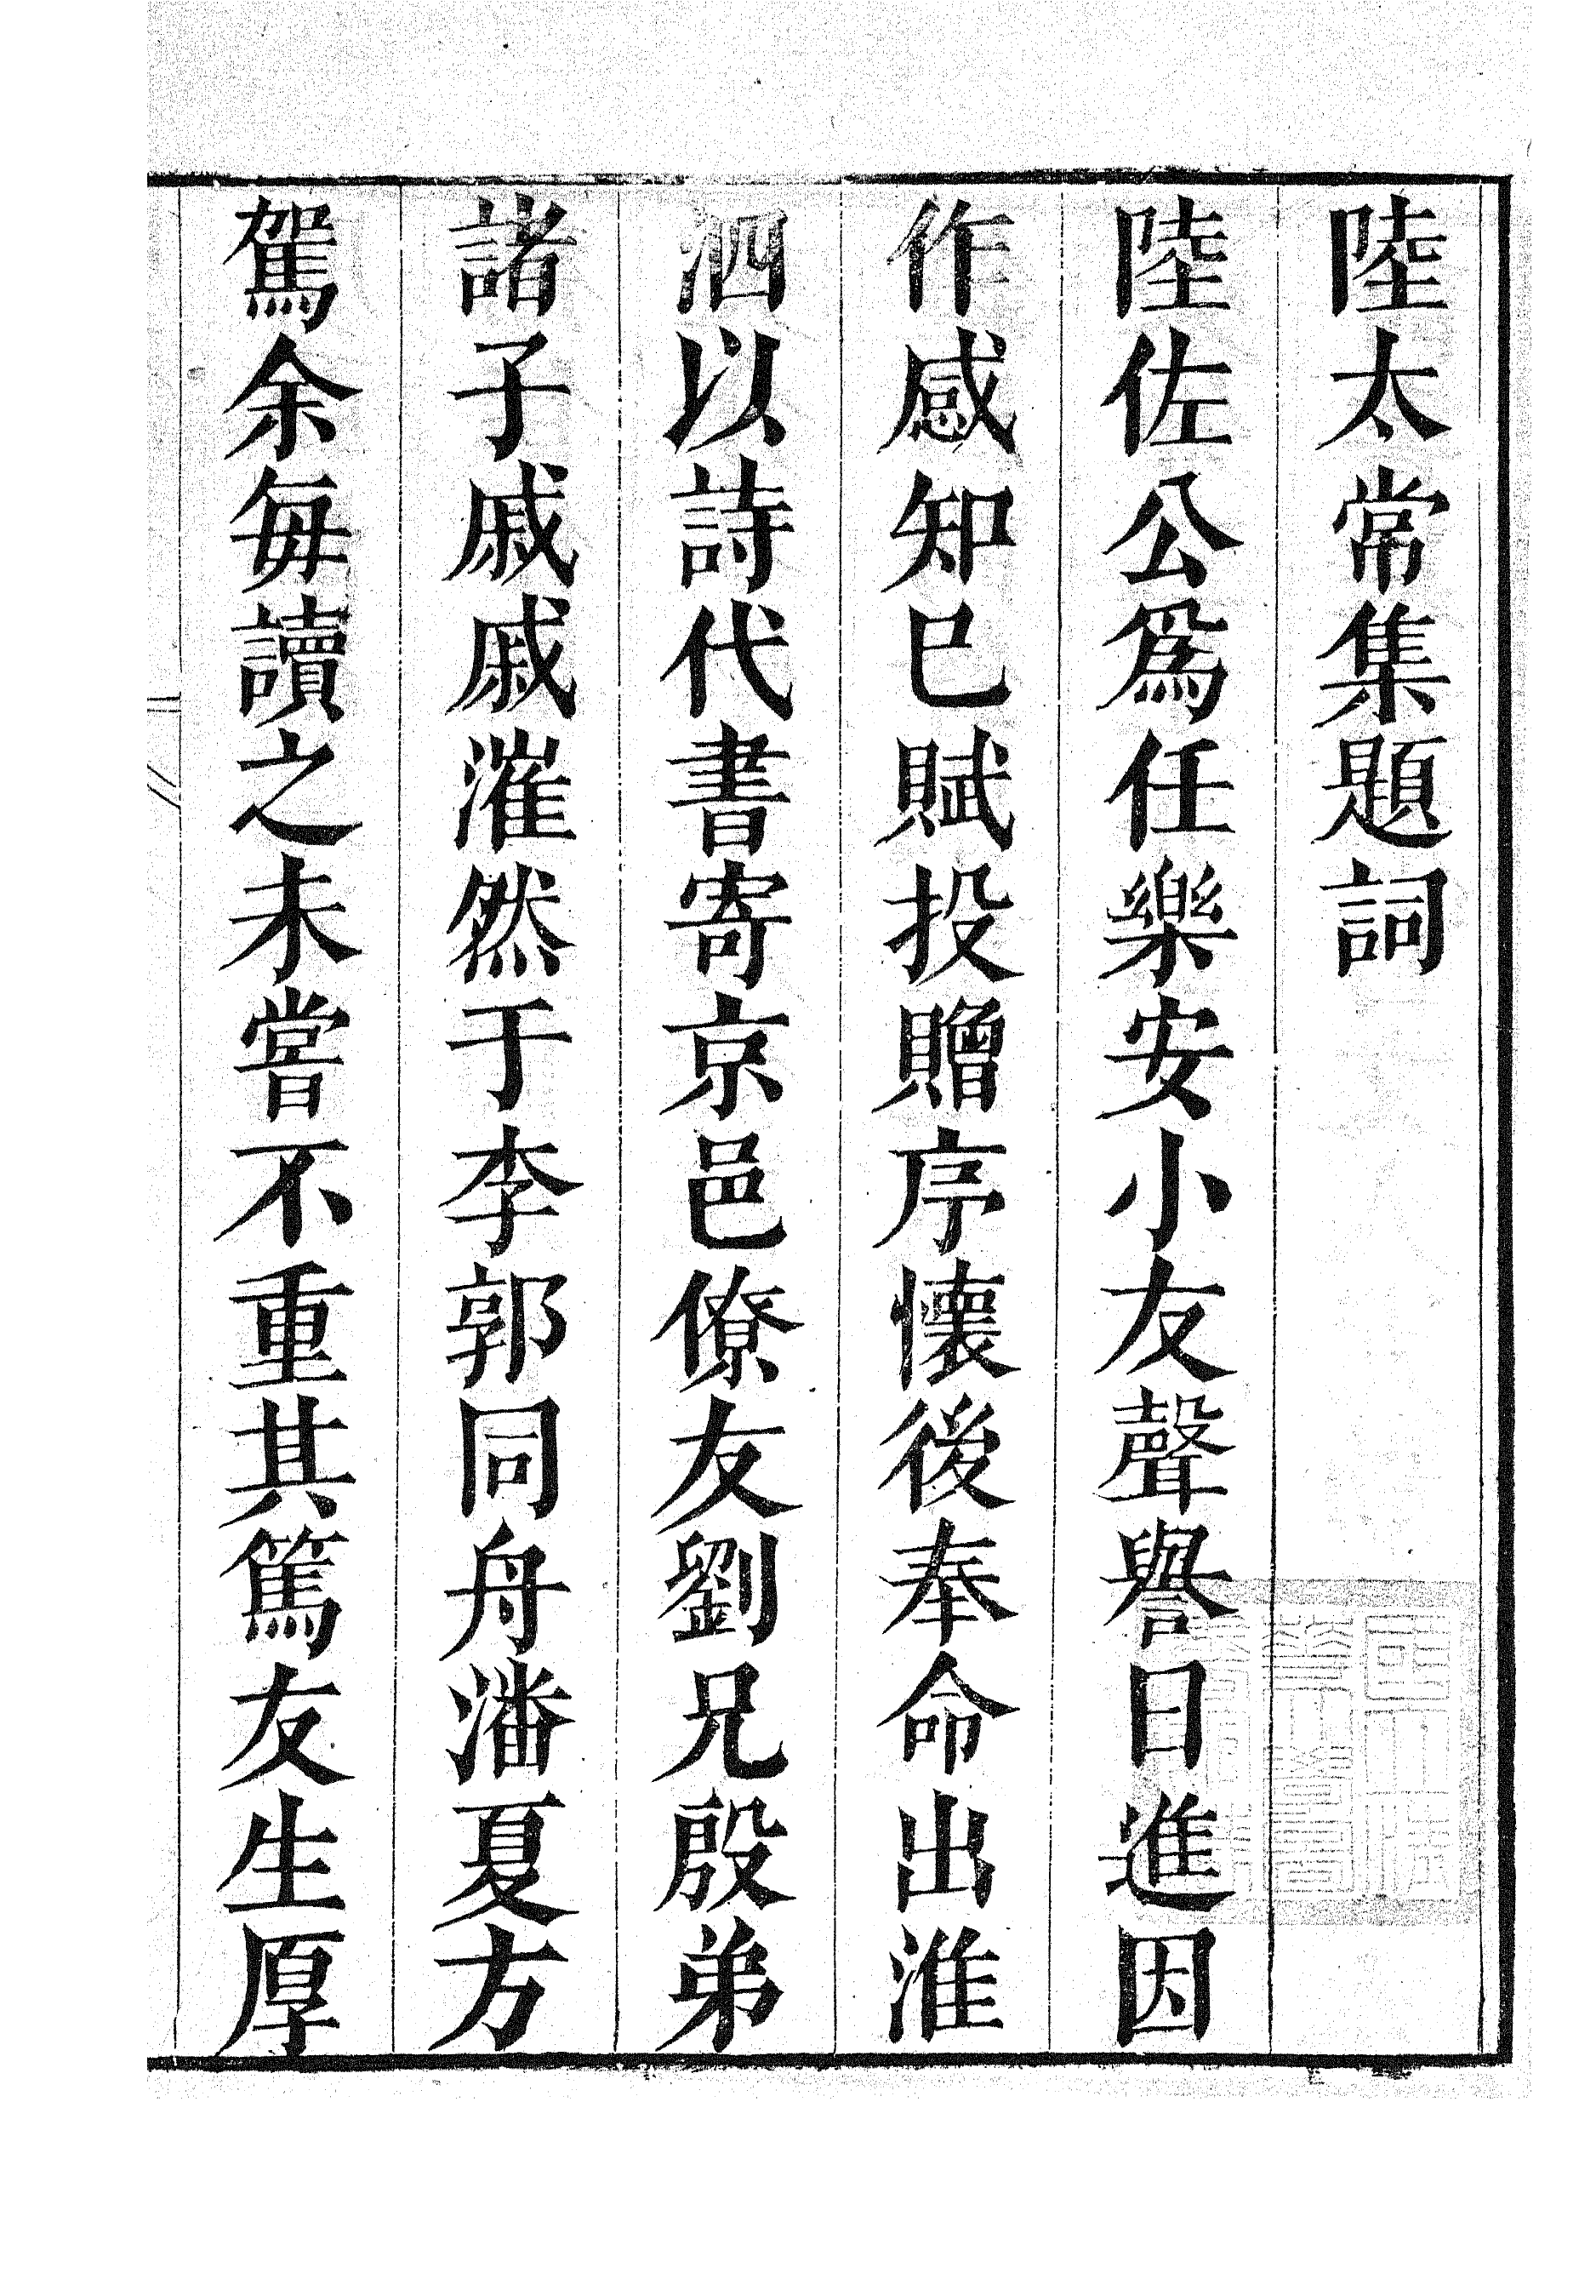 陸太常集題詞
陸佐公爲任樂安小友聲譽日進因
作感知已賦投贈序懷後奉命出淮
泗以詩代書寄京邑僚友劉兄殷弟
諸子戚戚漼然于李郭同舟潘夏方
駕余每讀之未嘗不重其篤友生厚